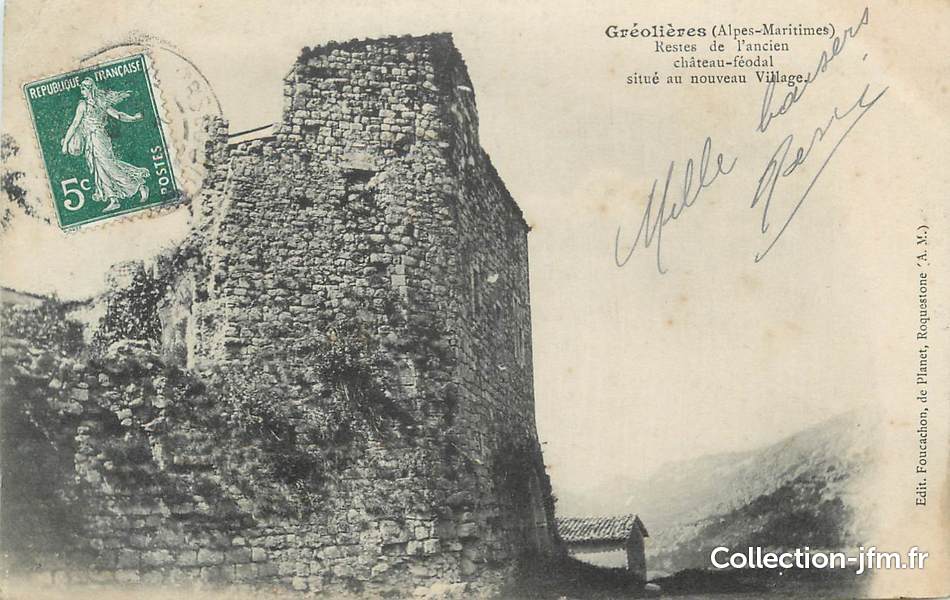 Gréolières (Alpes-Maritimes)
Restes de l'ancien
château-féodal
situé au nouveau Village.
Mille baisers
REPUBLIQUE FRANÇAISE
POSTES
5c
Edit. Foucachon, de Planet, Roquestone (A. M.)
Collection-jfm.fr